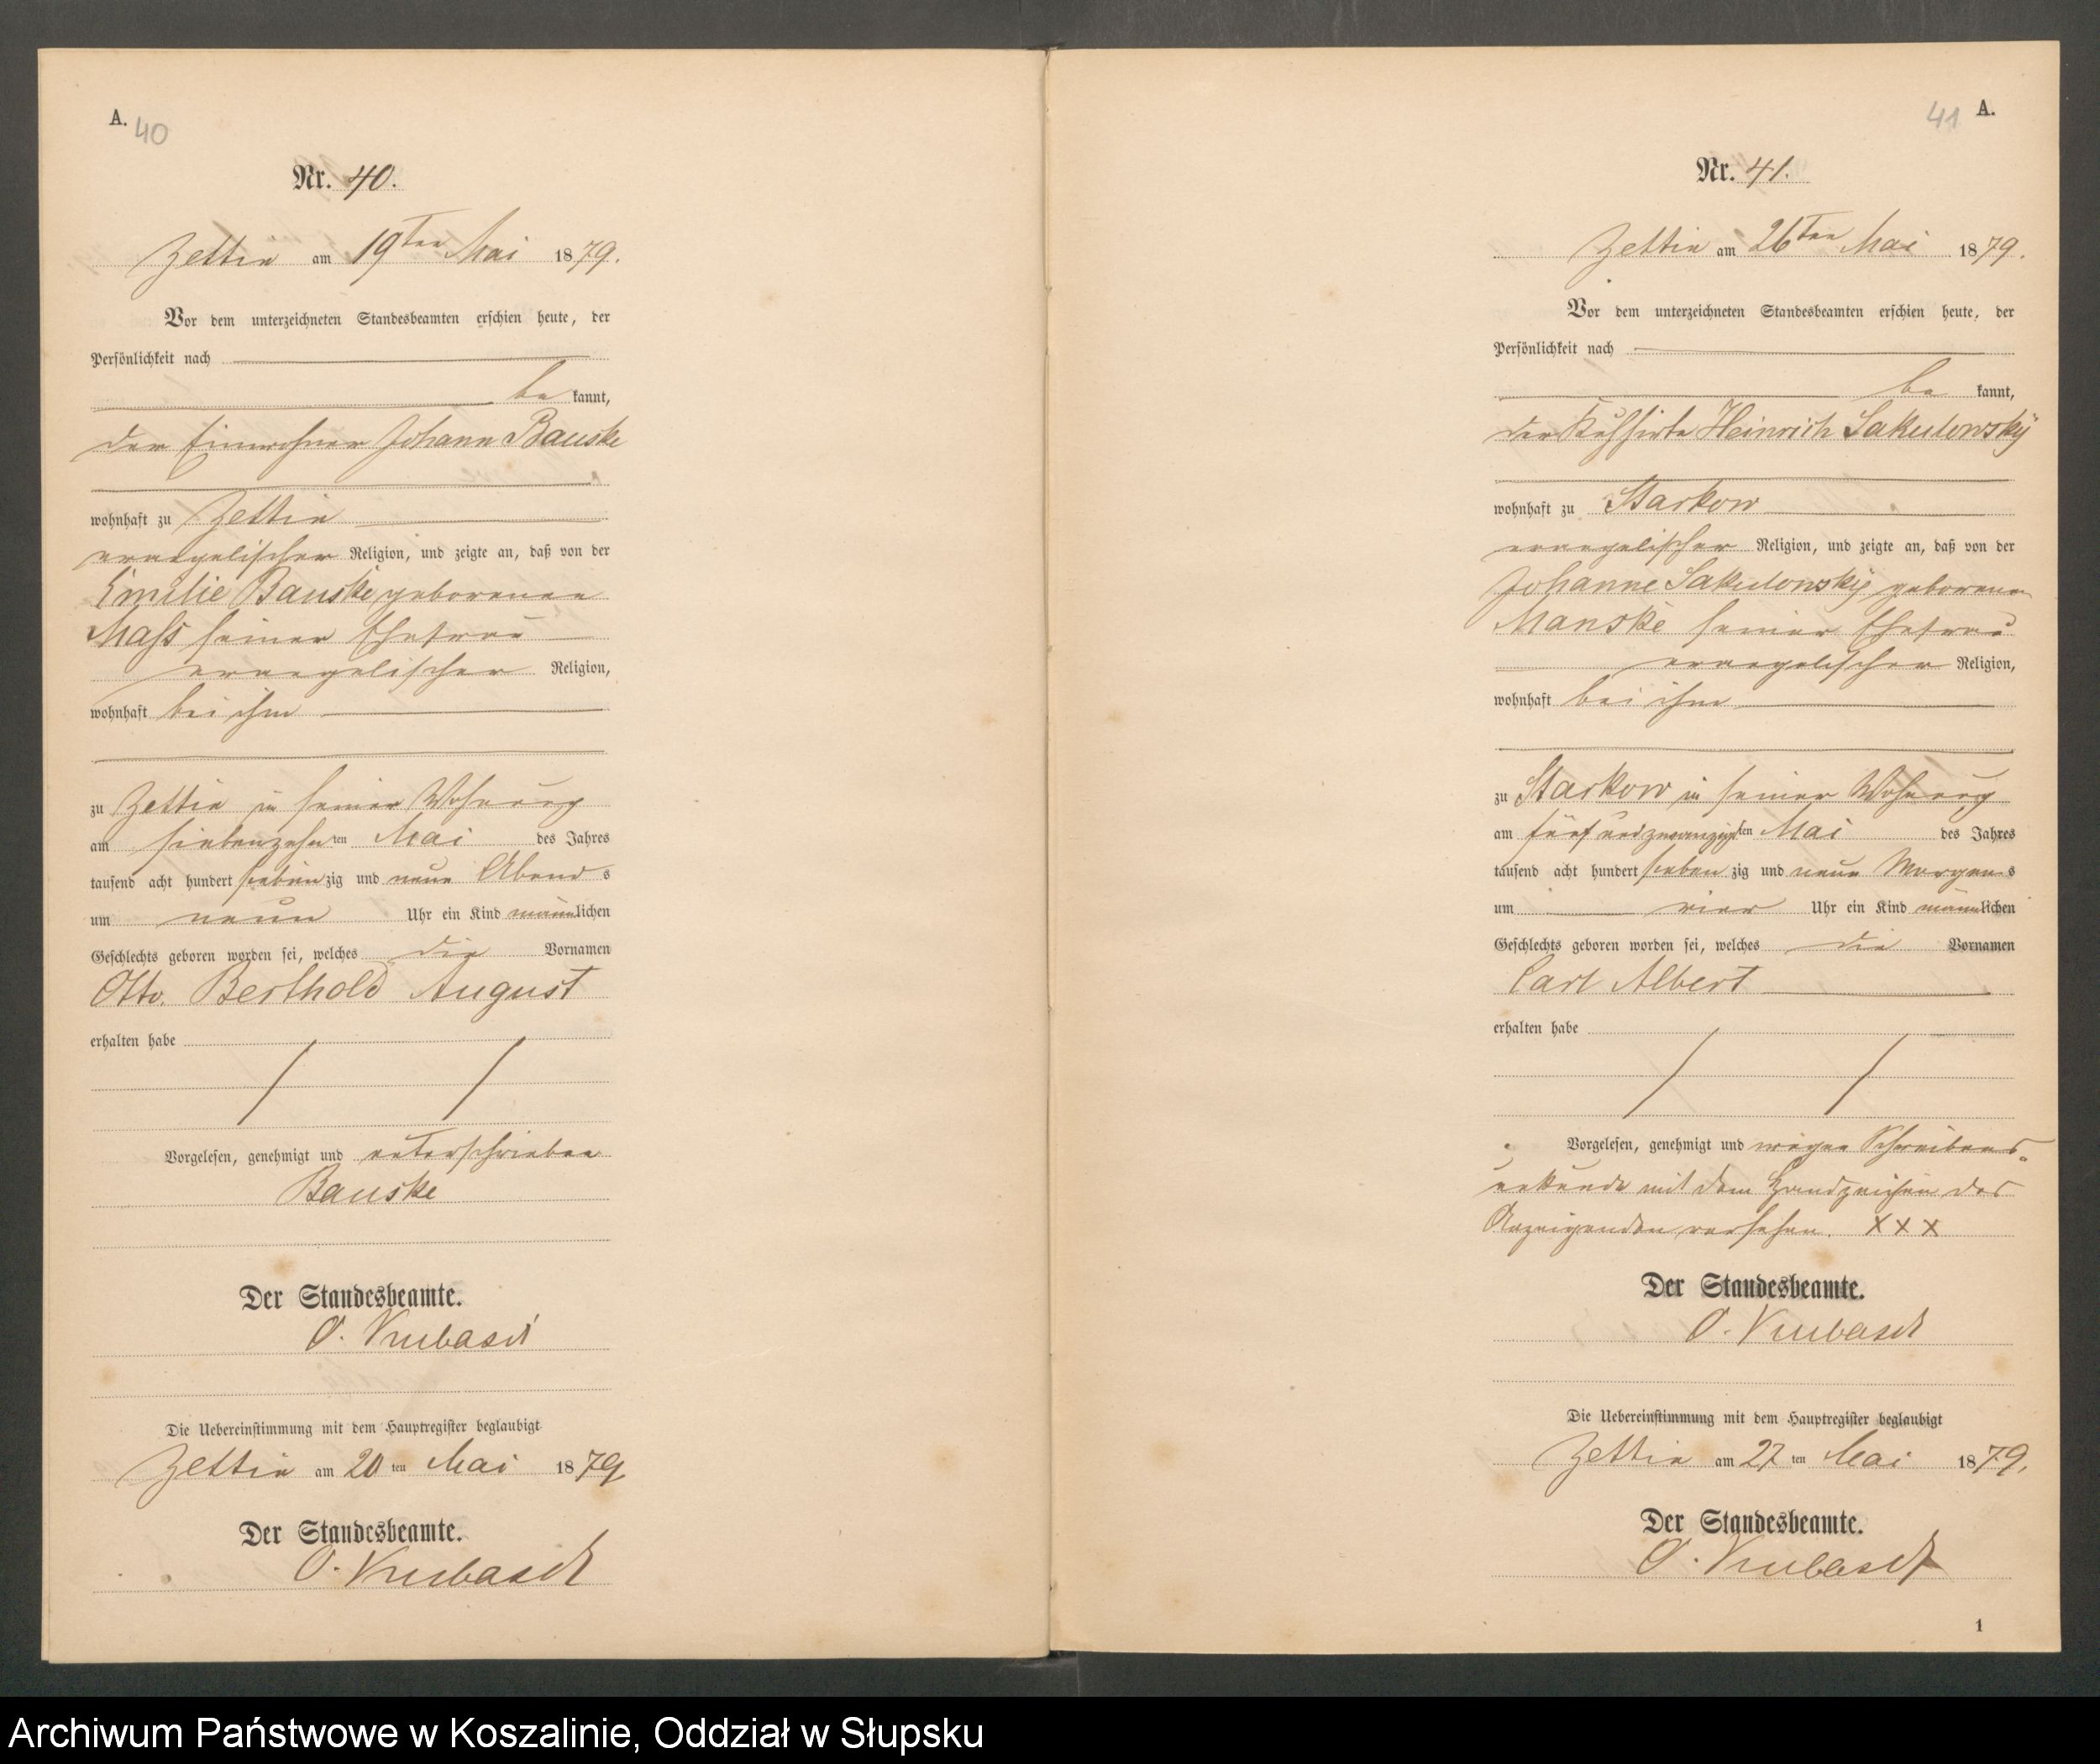 A. 40
Nr. 40.
Zettin am 19ten Mai 1879.
Vor dem unterzeichneten Standesbeamten erschien heute, der
Persönlichkeit nach
be kannt,
der Einwohner Johann Bauske
wohnhaft zu Zettin
evangelischer Religion, und zeigte an, daß von der
Emilie Bauske geborenen
Mass seiner Ehefrau
evangelischer Religion,
wohnhaft bei ihm
zu Zettin in seiner Wohnung
am siebenzehnten Mai des Jahres
tausend acht hundert siebenzig und neun Abends
um neun Uhr ein Kind männlichen
Geschlechts geboren worden sei, welches die Vornamen
Otto Berthold August
erhalten habe
Vorgelesen, genehmigt und unterschrieben
Bauske
Der Standesbeamte.
O. Kubasch
Die Uebereinstimmung mit dem Hauptregister beglaubigt
Zettin am 20ten Mai 1879
Der Standesbeamte.
O. Kubasch
41 A.
Nr. 41.
Zettin am 26ten Mai 1879.
Vor dem unterzeichneten Standesbeamten erschien heute, der
Persönlichkeit nach
be kannt,
der Kuhhirte Heinrich Sakulowsky
wohnhaft zu Starkow
evangelischer Religion, und zeigte an, daß von der
Johanne Sakulowsky geborenen
Manske seiner Ehefrau
evangelischer Religion,
wohnhaft bei ihm
zu Starkow in seiner Wohnung
am fünf und zwanzigsten Mai des Jahres
tausend acht hundert siebenzig und neun Morgens
um vier Uhr ein Kind männlichen
Geschlechts geboren worden sei, welches die Vornamen
Carl Albert
erhalten habe
Vorgelesen, genehmigt und wegen Schreibens-
unkunde mit dem Handzeichen des
Anzeigenden versehen. XXX
Der Standesbeamte.
O. Kubasch
Die Uebereinstimmung mit dem Hauptregister beglaubigt
Zettin am 27ten Mai 1879.
Der Standesbeamte.
O. Kubasch
1
Archiwum Państwowe w Koszalinie, Oddział w Słupsku